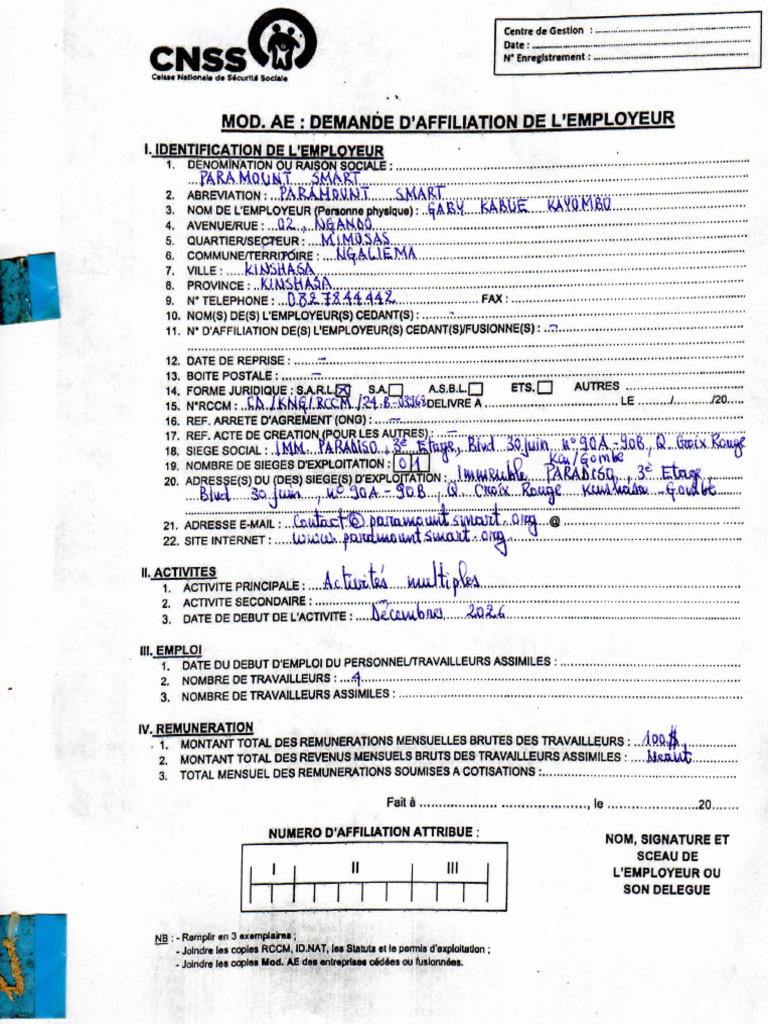 CNSS
Caisse Nationale de Sécurité Sociale
Centre de Gestion : ........................
Date : ........................
N° Enregistrement : ........................
MOD. AE : DEMANDE D'AFFILIATION DE L'EMPLOYEUR
I. IDENTIFICATION DE L'EMPLOYEUR
1. DENOMINATION OU RAISON SOCIALE :
PARAMOUNT SMART
2. ABREVIATION : PARAMOUNT SMART
3. NOM DE L'EMPLOYEUR (Personne physique) : GABY KABUE KAYOMBO
4. AVENUE/RUE : 02, NGANDO
5. QUARTIER/SECTEUR : MIMOSAS
6. COMMUNE/TERRITOIRE : NGALIEMA
7. VILLE : KINSHASA
8. PROVINCE : KINSHASA
9. N° TELEPHONE : 0827844442 FAX :
10. NOM(S) DE(S) L'EMPLOYEUR(S) CEDANT(S) : -
11. N° D'AFFILIATION DE(S) L'EMPLOYEUR(S) CEDANT(S)/FUSIONNE(S) : -
12. DATE DE REPRISE : -
13. BOITE POSTALE : -
14. FORME JURIDIQUE : S.A.R.L. X S.A. A.S.B.L. ETS. AUTRES
15. N°RCCM : CD/KNG/RCCM/24-B-03963 DELIVRE A LE / /20
16. REF. ARRETE D'AGREMENT (ONG) : -
17. REF. ACTE DE CREATION (POUR LES AUTRES) : -
18. SIEGE SOCIAL : IMM. PARADISO, 3e Etage, Blvd 30 juin n° 90A-90B, Q. Croix Rouge
Kin/Gombe
19. NOMBRE DE SIEGES D'EXPLOITATION : 01
20. ADRESSE(S) DU (DES) SIEGE(S) D'EXPLOITATION : Immeuble PARADISO, 3e Etage
Blvd 30 juin, n° 90A - 90B, Q. Croix Rouge Kinshasa - Gombe
21. ADRESSE E-MAIL : contact@paramountsmart.org @
22. SITE INTERNET : www.paramountsmart.org
II. ACTIVITES
1. ACTIVITE PRINCIPALE : Activités multiples
2. ACTIVITE SECONDAIRE : -
3. DATE DE DEBUT DE L'ACTIVITE : Décembres 2026
III. EMPLOI
1. DATE DU DEBUT D'EMPLOI DU PERSONNEL/TRAVAILLEURS ASSIMILES :
2. NOMBRE DE TRAVAILLEURS : 4
3. NOMBRE DE TRAVAILLEURS ASSIMILES :
IV. REMUNERATION
1. MONTANT TOTAL DES REMUNERATIONS MENSUELLES BRUTES DES TRAVAILLEURS : 100$
2. MONTANT TOTAL DES REVENUS MENSUELS BRUTS DES TRAVAILLEURS ASSIMILES : Néant
3. TOTAL MENSUEL DES REMUNERATIONS SOUMISES A COTISATIONS :
Fait à ........................, le ........................20.......
NUMERO D'AFFILIATION ATTRIBUE :
I II III
NOM, SIGNATURE ET
SCEAU DE
L'EMPLOYEUR OU
SON DELEGUE
NB : - Remplir en 3 exemplaires ;
- Joindre les copies RCCM, ID.NAT, les Statuts et le permis d'exploitation ;
- Joindre les copies Mod. AE des entreprises cédées ou fusionnées.